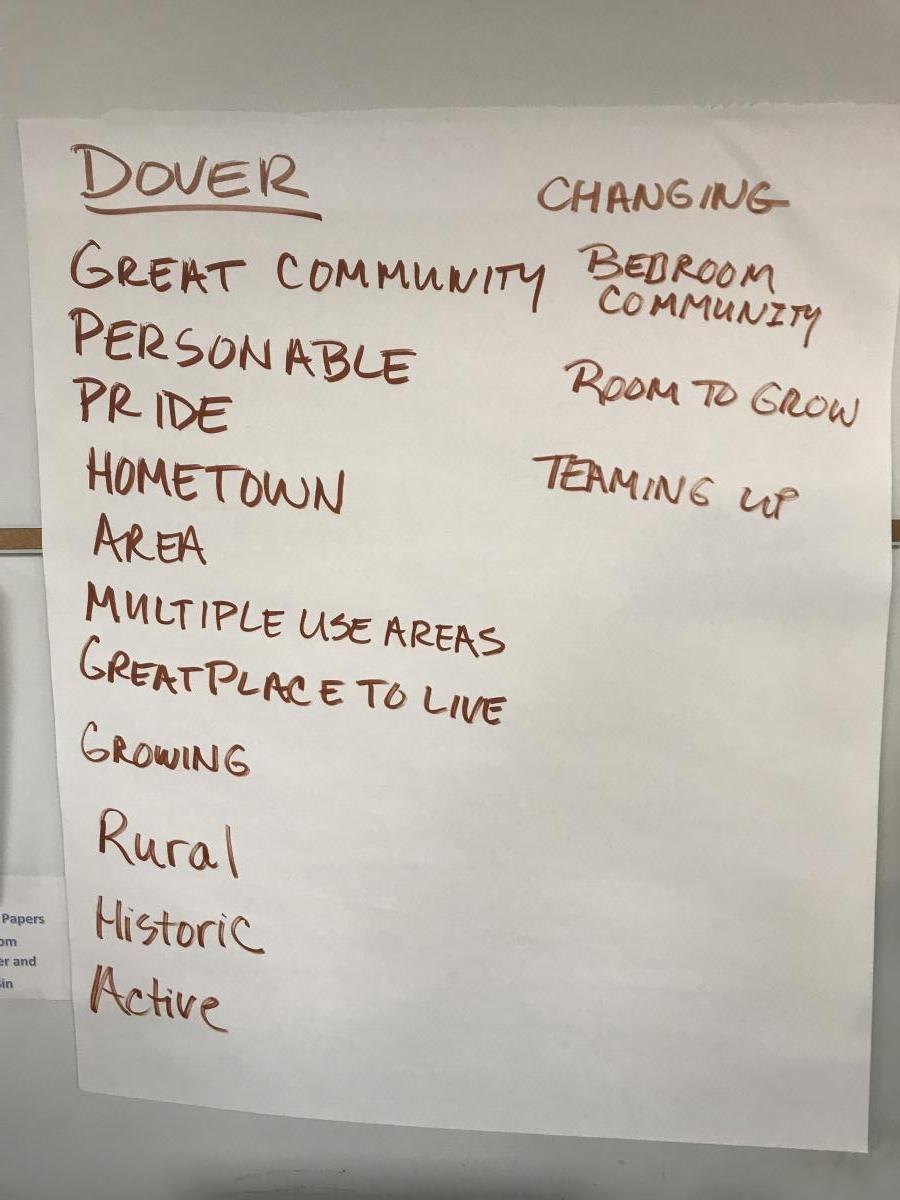 DOVER
GREAT COMMUNITY
PERSONABLE
PRIDE
HOMETOWN
AREA
MULTIPLE USE AREAS
GREAT PLACE TO LIVE
GROWING
Rural
Historic
Active
CHANGING
BEDROOM
COMMUNITY
ROOM TO GROW
TEAMING UP
Papers
om
er and
in